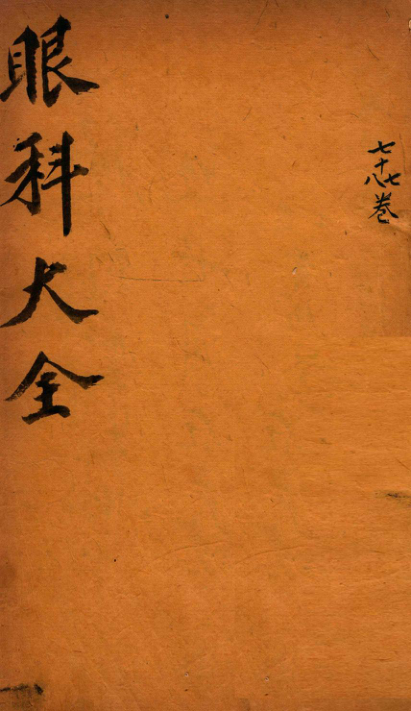 七十七八卷
眼科大全